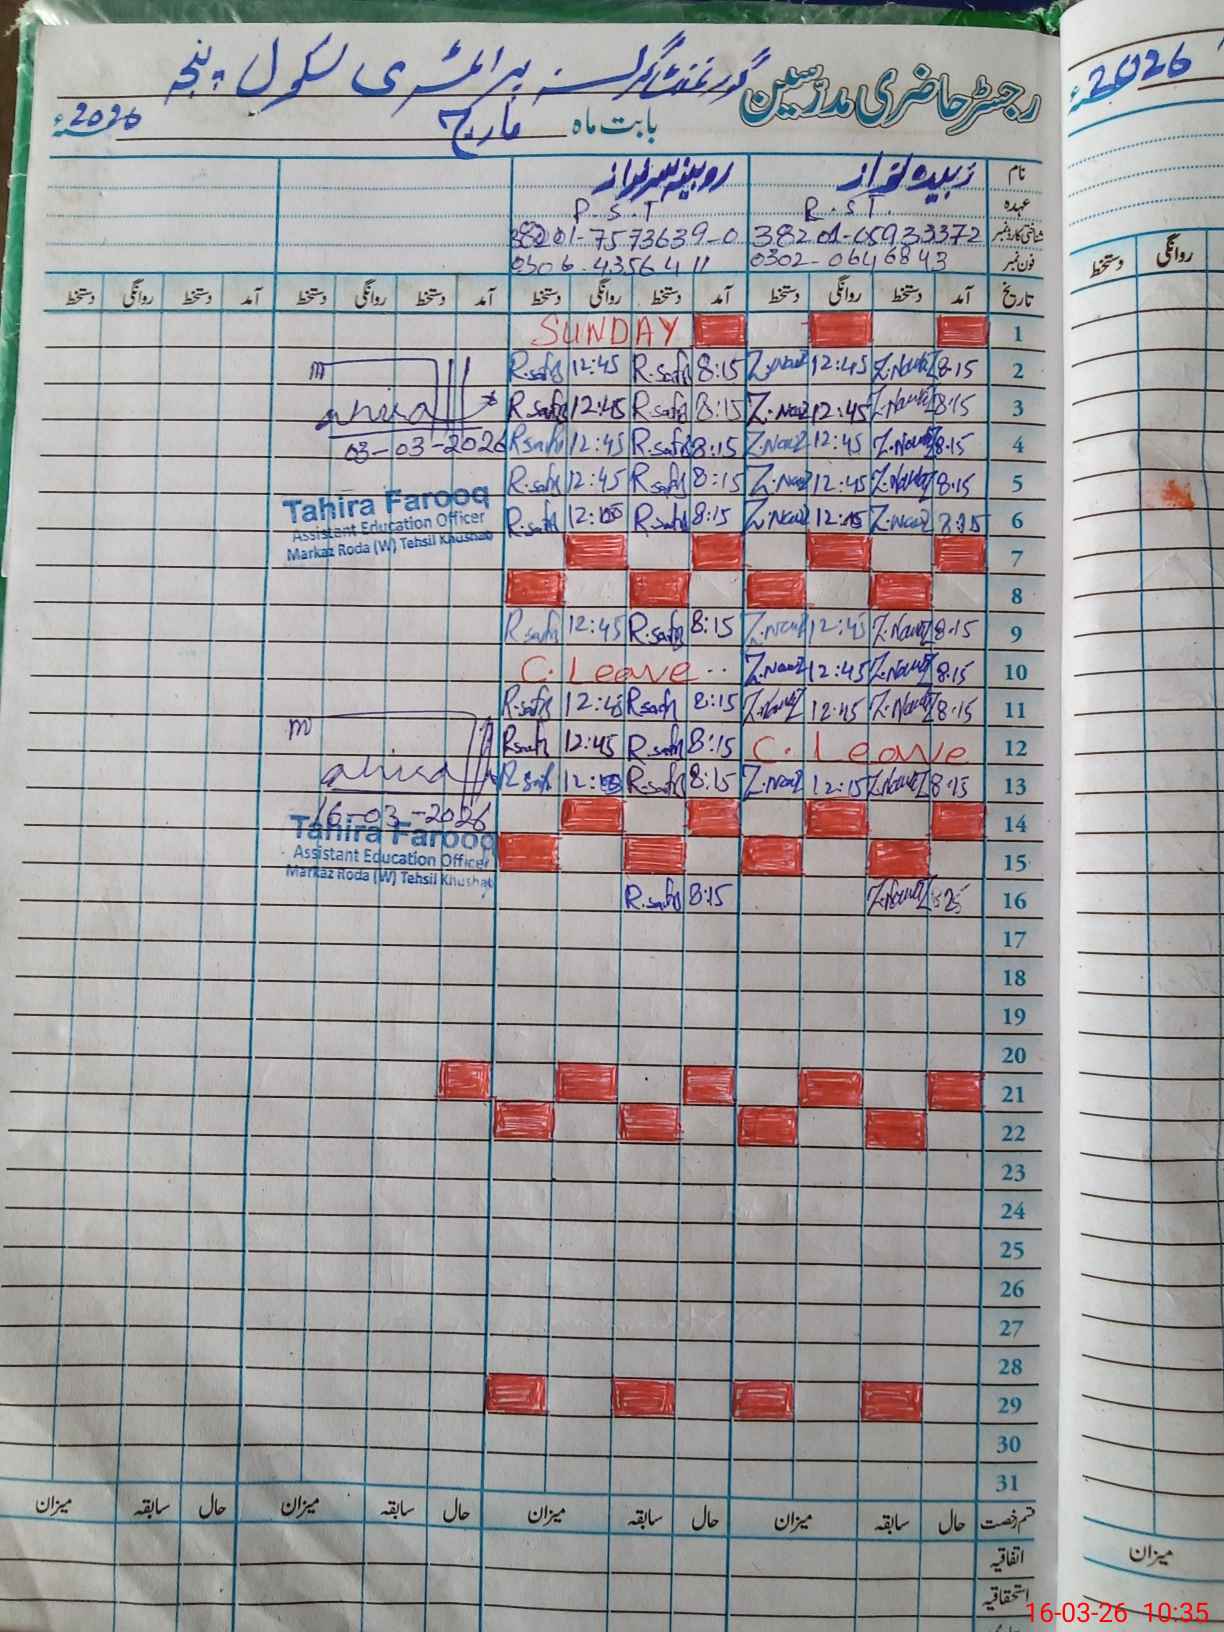 گورنمنٹ گرلز پرائمری سکول پنجہ
رجسٹر حاضری مدرسین
بابت ماہ مارچ 2026ء
2026ء
نام زبیدہ نواز روبینہ سرفراز
عہدہ P.S.T. P.S.T
شناختی کارڈ نمبر 38201-65933372 38201-7573639-0
فون نمبر 0302-0646843 0306-4356411
تاریخ آمد دستخط روانگی دستخط آمد دستخط روانگی دستخط آمد دستخط روانگی دستخط آمد دستخط روانگی دستخط
روانگی دستخط
1 SUNDAY
2 8:15 Z.Nawaz 12:45 Z.Nawaz 8:15 R.safr 12:45 R.safr
3 8:15 Z.Nawaz 12:45 Z.Nawaz 8:15 R.safr 12:45 R.safr
03-03-2026
4 8:15 Z.Nawaz 12:45 Z.Nawaz 8:15 R.safr 12:45 R.safr
5 8:15 Z.Nawaz 12:45 Z.Nawaz 8:15 R.safr 12:45 R.safr
Tahira Farooq
Assistant Education Officer
Markaz Roda (W) Tehsil Khushab
6 8:15 Z.Nawaz 12:15 Z.Nawaz 8:15 R.safr R.safr
7
8
9 8:15 Z.Nawaz 12:45 Z.Nawaz 8:15 R.safr 12:45 R.safr
10 8:15 Z.Nawaz 12:45 Z.Nawaz C. Leave
11 8:15 Z.Nawaz 12:45 Z.Nawaz 8:15 R.safr 12:45 R.safr
12 C. Leave 8:15 R.safr 12:45 R.safr
13 8:15 Z.Nawaz 12:15 Z.Nawaz 8:15 R.safr R.safr
16-03-2026
Tahira Farooq
Assistant Education Officer
Markaz Roda (W) Tehsil Khushab
14
15
16 Z.Nawaz 8:15 R.safr
17
18
19
20
21
22
23
24
25
26
27
28
29
30
31
قسم رخصت حال سابقہ میزان حال سابقہ میزان حال سابقہ میزان حال سابقہ میزان
میزان
اتفاقیہ
استحقاقیہ
16-03-26 10:35